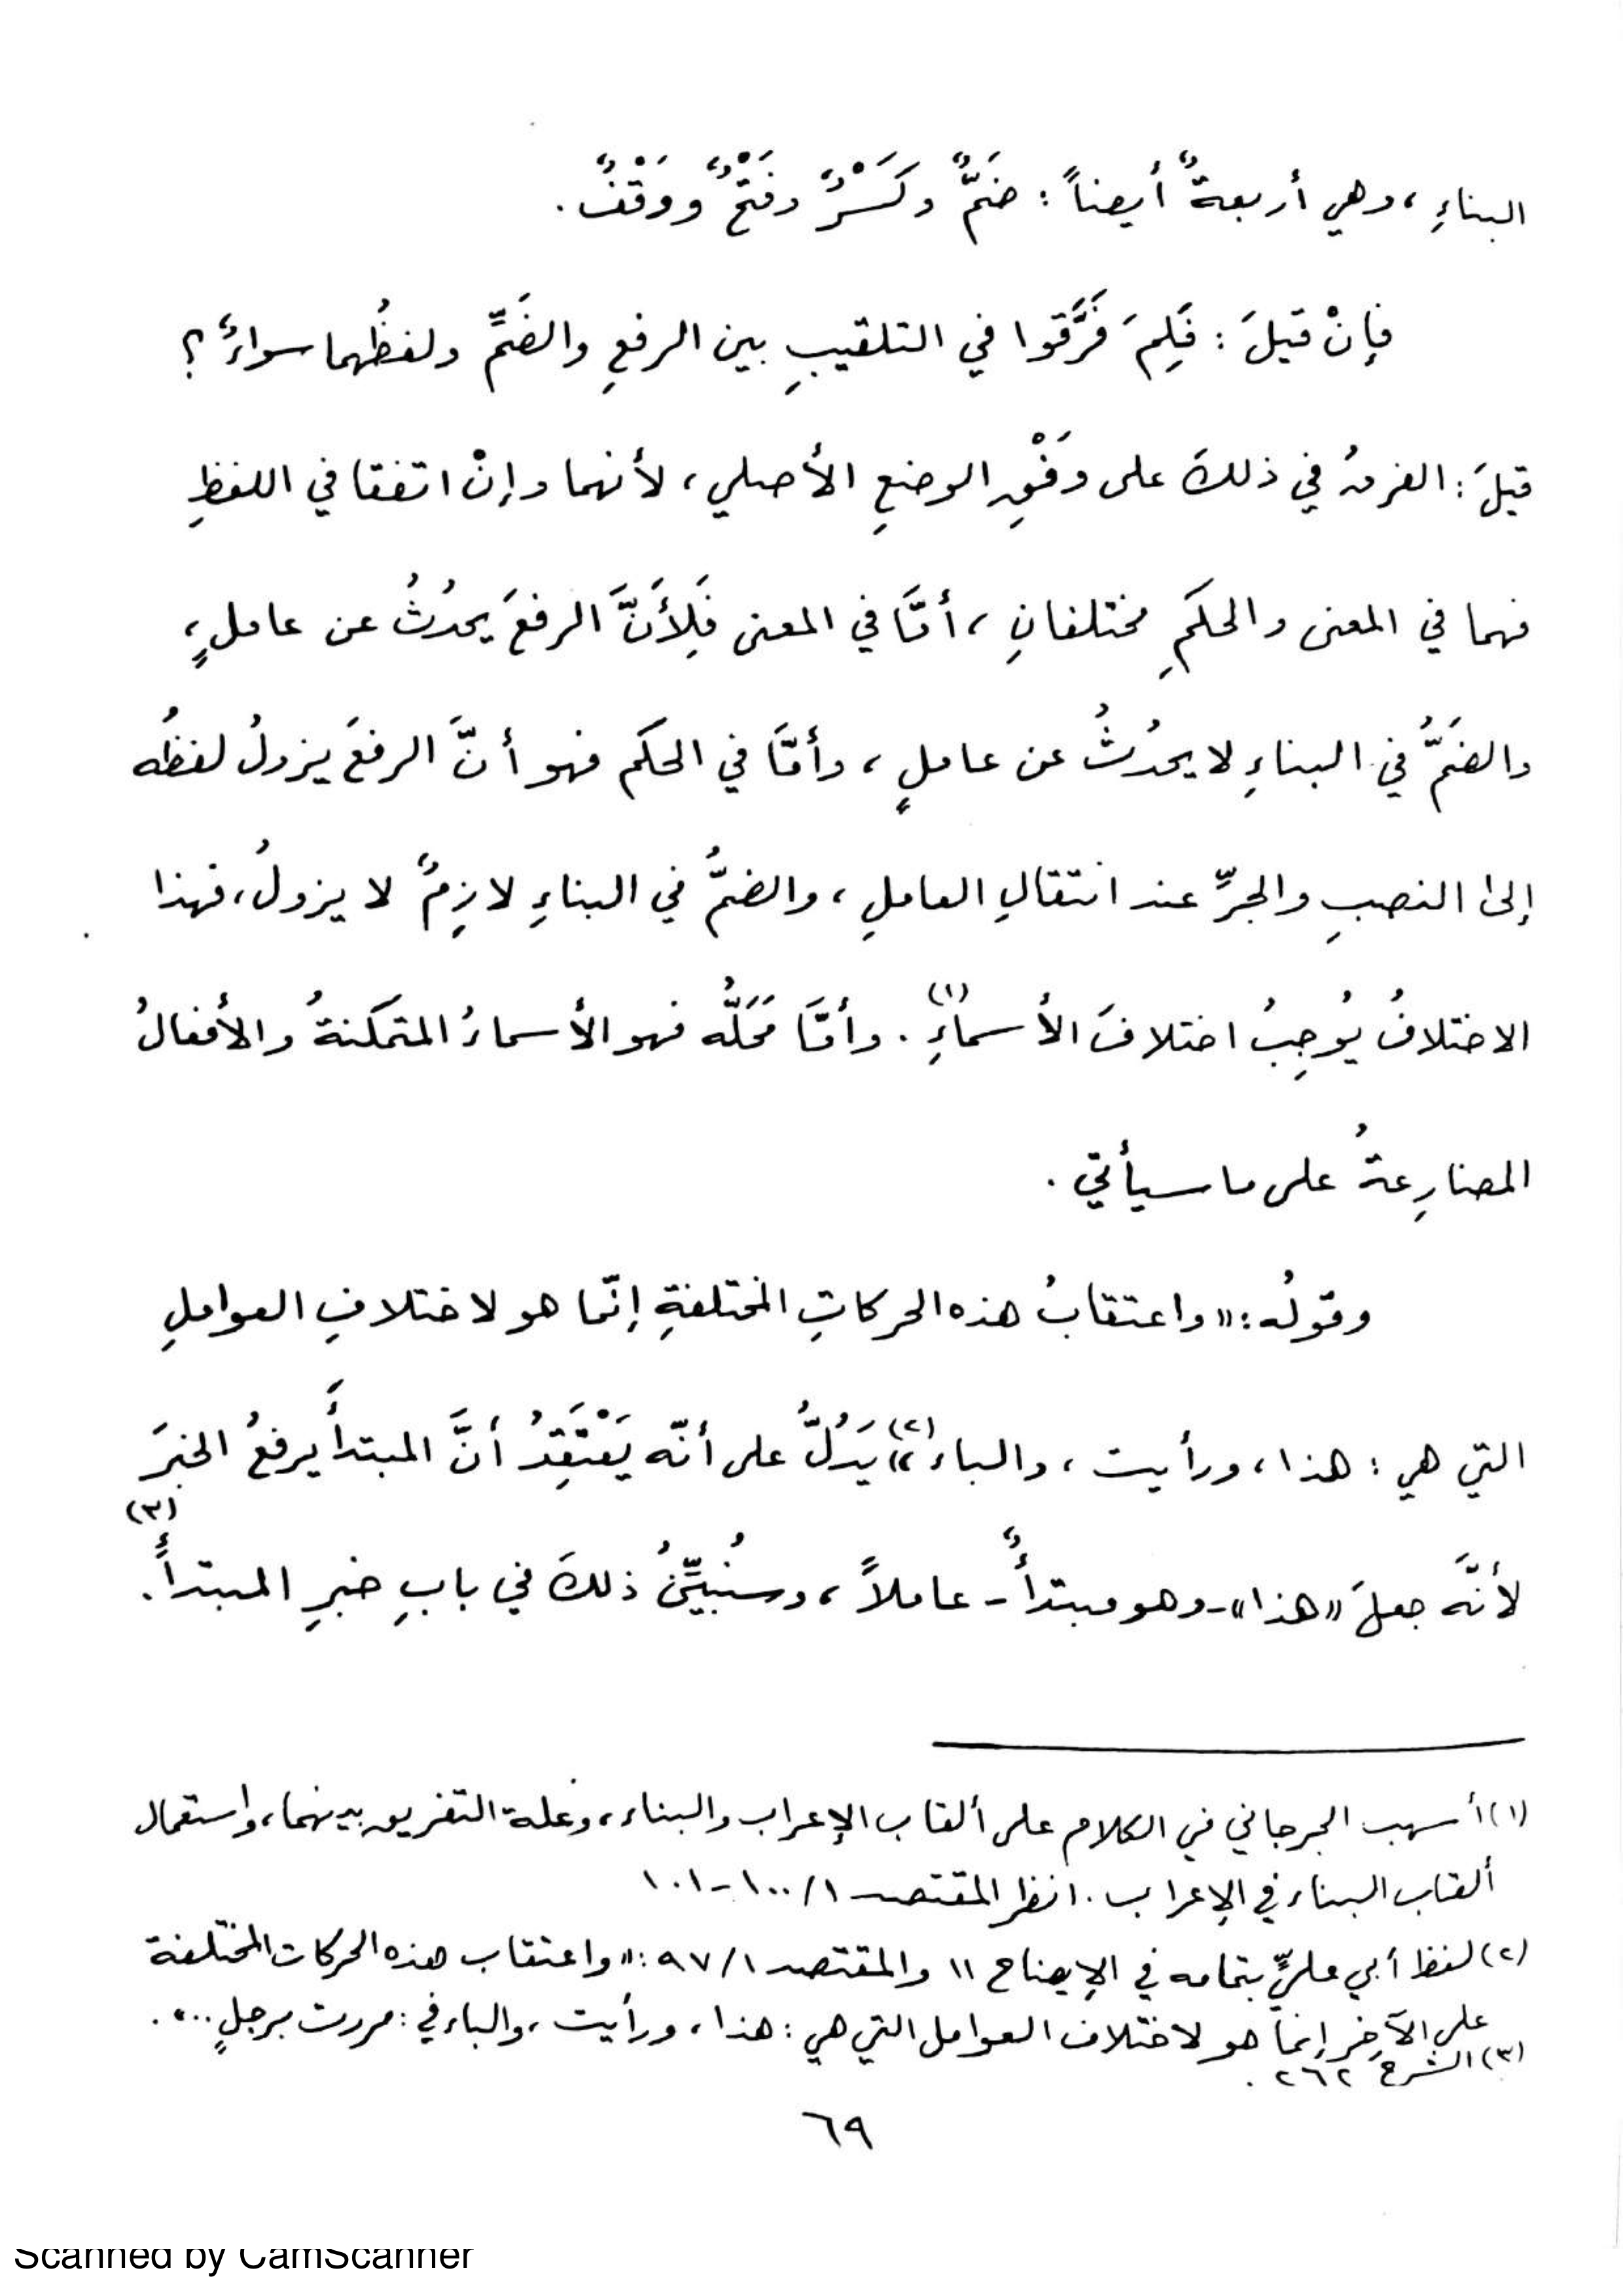 البناءِ ، وهي أربعةٌ أيضاً : ضَمٌّ وكَسْرٌ وفَتْحٌ ووَقْفٌ .
فإنْ قيلَ : فَلِمَ فَرَّقوا في التلقيبِ بين الرفعِ والضَمِّ ولفظُهما سواءٌ ؟
قيلَ : الفرقُ في ذلكَ على وَفْقِ الوضعِ الأصلي ، لأنهما وإنْ اتفقا في اللفظِ
فهما في المعنى والحكمِ مختلفانِ ، أمَّا في المعنى فَلِأَنَّ الرفعَ يحدُثُ عن عاملٍ ،
والضَمَّ في البناءِ لا يحدُثُ عن عاملٍ ، وأمَّا في الحكم فهو أنَّ الرفعَ يزولُ لفظُه
إلى النصبِ والجرِّ عند انتقالِ العاملِ ، والضمُّ في البناءِ لازِمٌ لا يزولُ ، فهذا
الاختلافُ يُوجِبُ اختلافَ الأسماءِ (١) . وأمَّا مَحَلُّه فهو الأسماءُ المتمكنةُ والأفعالُ
المضارِعةُ على ما سيأتي .
وقولُه : « واعتقابُ هذه الحركاتِ المختلفةِ إنّما هو لاختلافِ العواملِ
التي هي : هذا ، ورأيت ، والباء » (٢) يَدُلُّ على أنّه يَعْتَقِدُ أنَّ المبتدأَ يرفعُ الخبرَ
لأنَّه جعلَ « هذا » - وهو مبتدأٌ - عاملاً ، وسنُبيِّنُ ذلكَ في بابِ خبرِ المبتدأِ (٣) .
(١) أسهب الجرجاني في الكلام على ألقاب الإعراب والبناء ، وعلة التفريق بينهما ، واستعمال
ألقاب البناء في الإعراب . انظر المقتصد ١/ ١٠٠ - ١٠١
(٢) لفظ أبي عليٍّ بتمامه في الإيضاح ١١ والمقتصد ١/ ٩٧ : « واعتقاب هذه الحركات المختلفة
على الآخِر إنما هو لاختلاف العوامل التي هي : هذا ، ورأيت ، والباء في : مررت برجلٍ ... » .
(٣) الشرح ٢٦٢ .
٦٩
Scanned by CamScanner